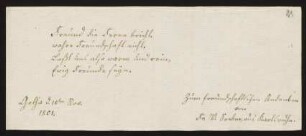 Freund die Ferne bricht
wahre Freundschaft nicht,
Laßt uns also warm und rein,
Ewig Freunde seyn.
Gotha d. 10ten Nov.
1801.
Zum freundschaftlichen Andenken
von
Fr.